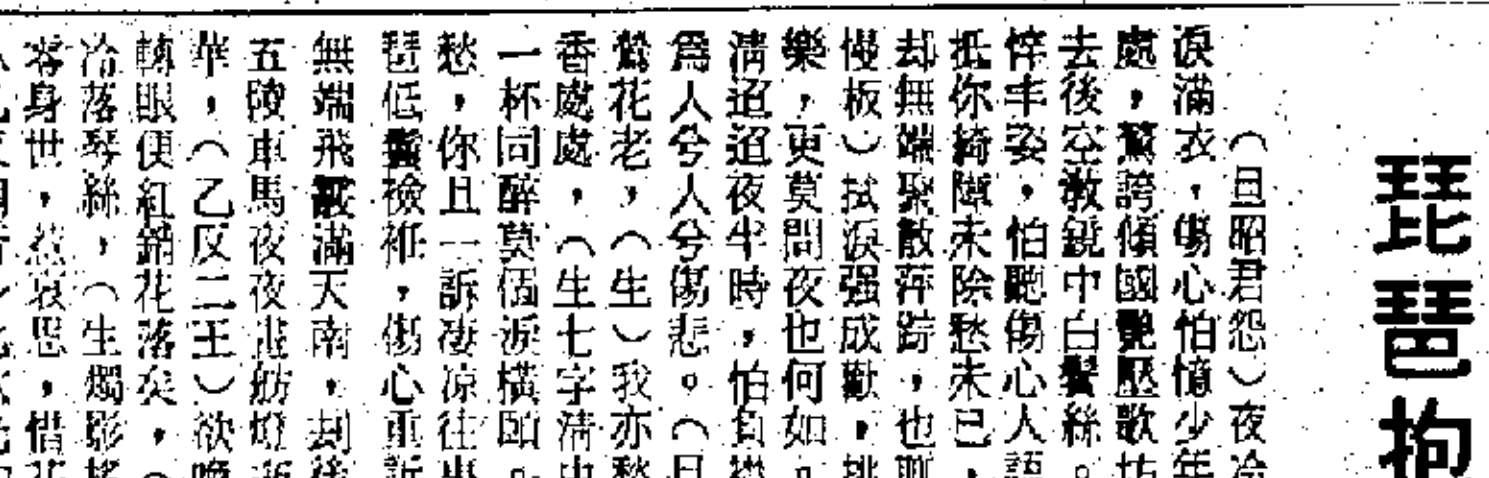 琵琶抱
（旦昭君怨）夜冷
淚滿衣，傷心怕憶少年
處，驚誇傾國艷壓歌坊
去後空激鏡中白鬢絲。
悴丰姿，怕聽傷心人語
抵你綺障未除愁未已，
却無端聚散萍踪，也
慢板）拭淚强成歡，挑
樂，更莫問夜也何如。
淸迢迢夜半時，怕負
爲人兮人兮傷悲。（旦
鶯花老，（生）我亦愁
香處處，（生七字淸中
一杯同醉莫個淚橫頤。
愁，你且一訴凄凉往事
琶低鬟襝袵，傷心重訴
無端飛滿天南，刦後
五陵車馬夜夜畫舫燈
華，（乙反二王）欲喚
轉眼便紅銷花落矣，（
冷落琴絲，（生）燭影搖
零身世，惹哀思，借花